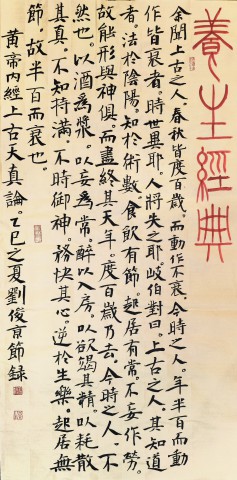 養生經典
余聞上古之人。春秋皆度百歲。而動作不衰。今時之人。年半百而動
作皆衰者。時世異耶。人將失之耶。岐伯對曰。上古之人。其知道
者。法於陰陽。知於術數。食飲有節。起居有常。不妄作勞。
故能形與神俱。而盡終其天年。度百歲乃去。今時之人。不
然也。以酒為漿。以妄為常。醉以入房。以欲竭其精。以耗散
其真。不知持滿。不時御神。務快其心。逆於生樂。起居無
節。故半百而衰也。
黃帝內經上古天真論。乙巳之夏劉俊京節錄